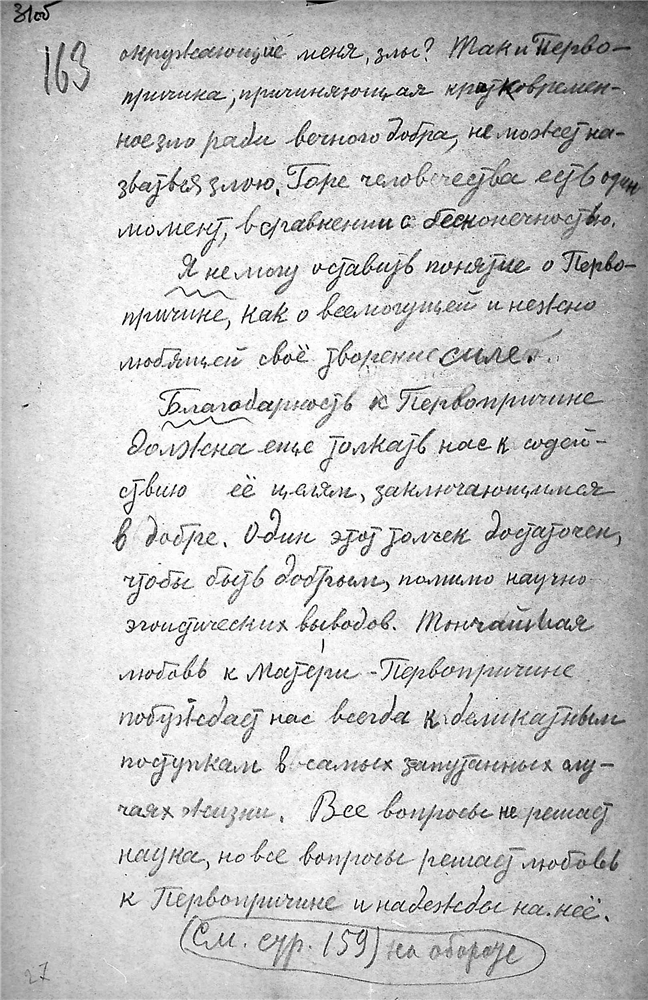 31об
163
окружающие меня, злы? Так и Перво-
причина, причиняющая кратковремен-
ное зло ради вечного добра, не может на-
зваться злою. Горе человечества есть один
момент, в сравнении с бесконечностью.
Я не могу оставить понятие о Перво-
причине, как о всемогущей и нежно
любящей своё творение силе.
Благодарность к Первопричине
должна еще толкать нас к содей-
ствию её целям, заключающимся
в добре. Один этот толчек достаточен,
чтобы быть добрым, помимо научно
эгоистических выводов. Тончайшая
любовь к Матери-Первопричине
побуждает нас всегда к деликатным
поступкам в самых запутанных слу-
чаях жизни. Все вопросы не решает
наука, но все вопросы решает любовь
к Первопричине и надежды на неё.
(См. стр. 159) на обороте
27